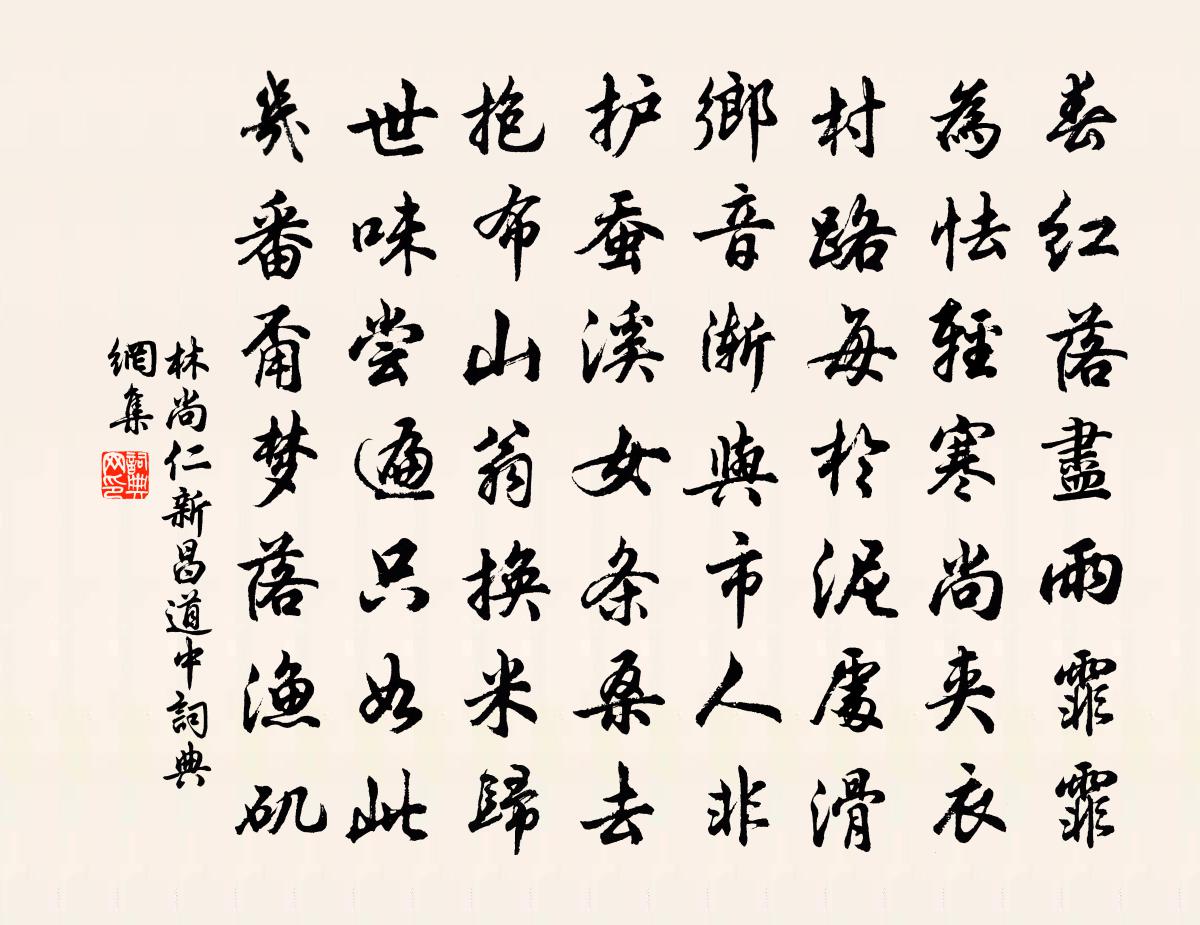 春红落盡雨霏霏
為怯輕寒尚夹衣
村路每於泥處滑
鄉音渐與市人非
护蚕溪女条桑去
抱布山翁换米歸
世味尝遍只如此
幾番甭梦落漁矶
林尚仁新昌道中詞典
網集
詞典
网印